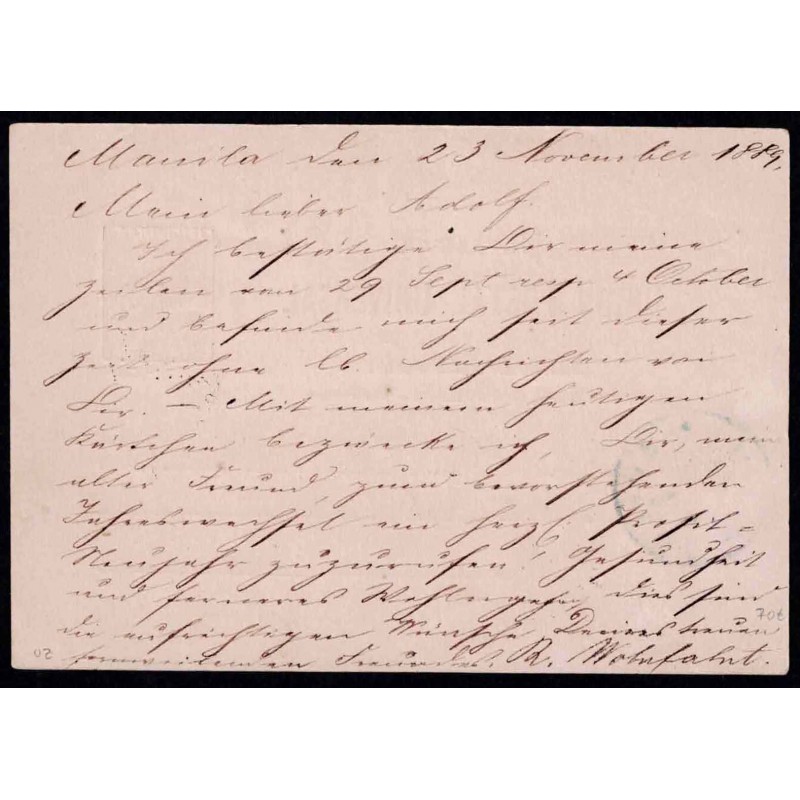 Manila den 23 November 1889,
Mein lieber Adolf.
Ich bestätige Dir meine
Zeilen von 29 Sept resp 4 October
und befinde mich seit dieser
Zeit ohne lb. Nachrichten von
Dir. — Mit meinem heutigen
Kärtchen bezwecke ich, Dir, mein
alter Freund, zum bevorstehenden
Jahreswechsel ein herzl. Prosit=
Neujahr zuzurufen! Gesundheit
und ferneres Wohlergehn, dies sind
70€
die aufrichtigen Wünsche Deines treuen
20
fernweilenden Freundes. R. Wohlfahrt.